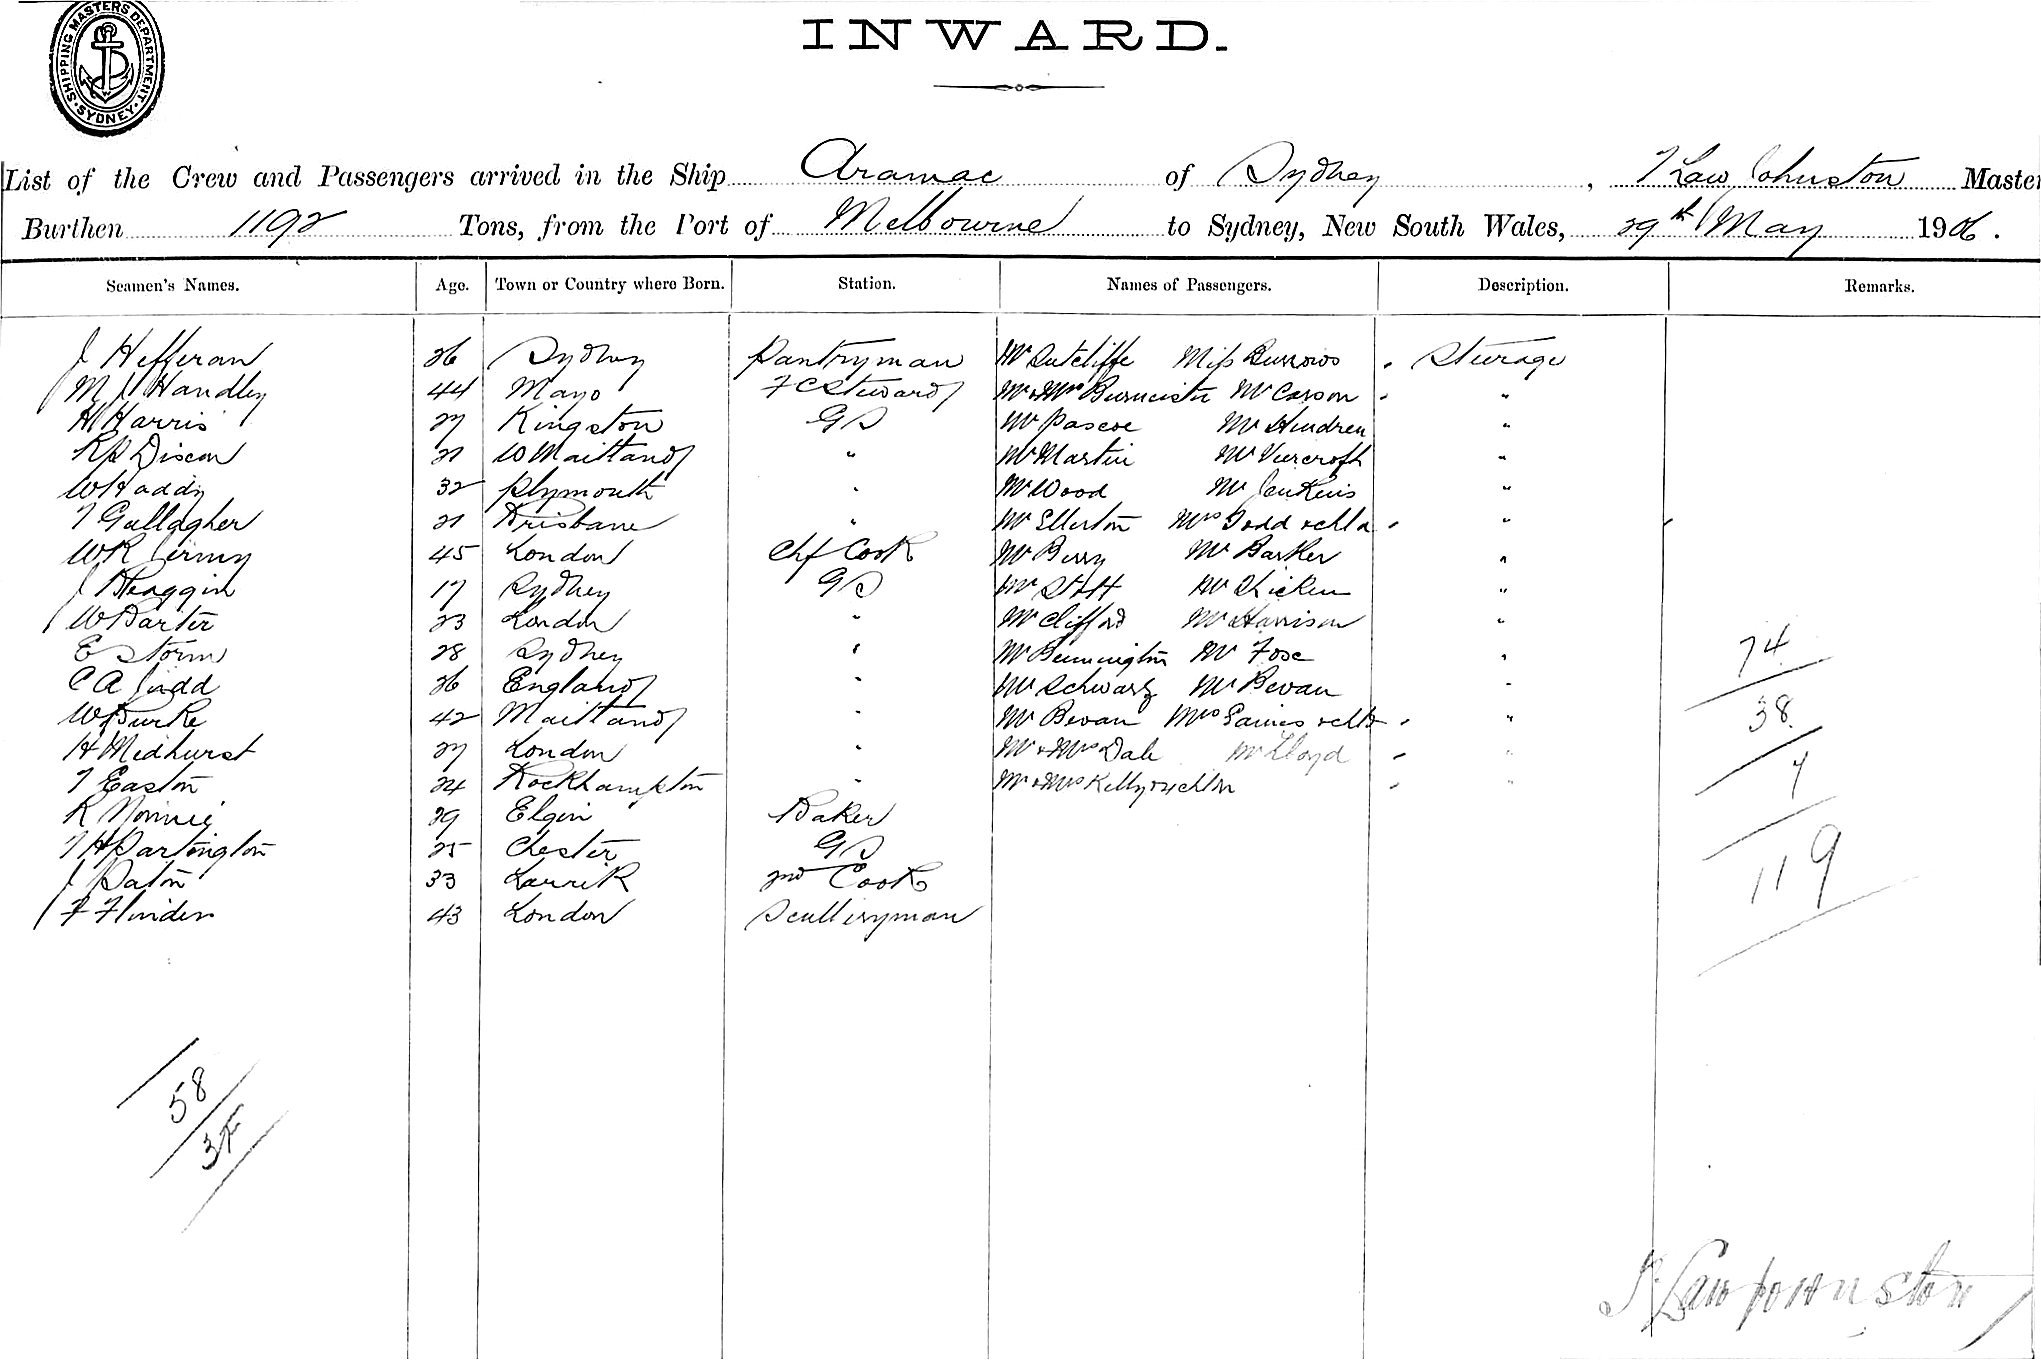 SHIPPING MASTERS DEPARTMENT. SYDNEY
INWARD.
List of the Crew and Passengers arrived in the Ship Aramac of Sydney, T Law Johnston Master
Burthen 1192 Tons, from the Port of Melbourne to Sydney, New South Wales, 29th May 1906.
Seamen's Names. Age. Town or Country where Born. Station. Names of Passengers. Description. Remarks.
J Hefferan 26 Sydney Pantryman Mr Sutcliffe Miss Burrows Steerage
M J Handley 44 Mayo F C Steward Mr & Mrs Burmeister Mr Carson "
H Harris 27 Kingston GS Mr Pascoe Mr Hindren "
21 W Maitland " Mr Martin "
W Haddy 32 Plymouth " Mr Wood Mr Jenkins "
T Gallagher 21 Brisbane " Mr Ellerton Mrs Todd & chld "
W R 45 London Chf Cook Mr Berry Mr Barker "
J 17 Sydney GS Mr Stott Mr "
W Barter 23 London " Mr Clifford Mr Harrison "
E Storm 28 Sydney " Mr Bennington Mr Fox "
C A Judd 26 England " Mr Schwartz Mr Bevan "
W Burke 42 Maitland " Mr Bevan Mrs "
H Medhurst 27 London " Mr & Mrs Dale Mr Lloyd "
T Easton 24 Rockhampton " Mr & Mrs Kelly "
R 29 Elgin Baker
T H Partington 25 Chester GS
J Paton 33 2nd Cook
F 43 London Sculleryman
74
38
7
119
58
T. Law Johnston